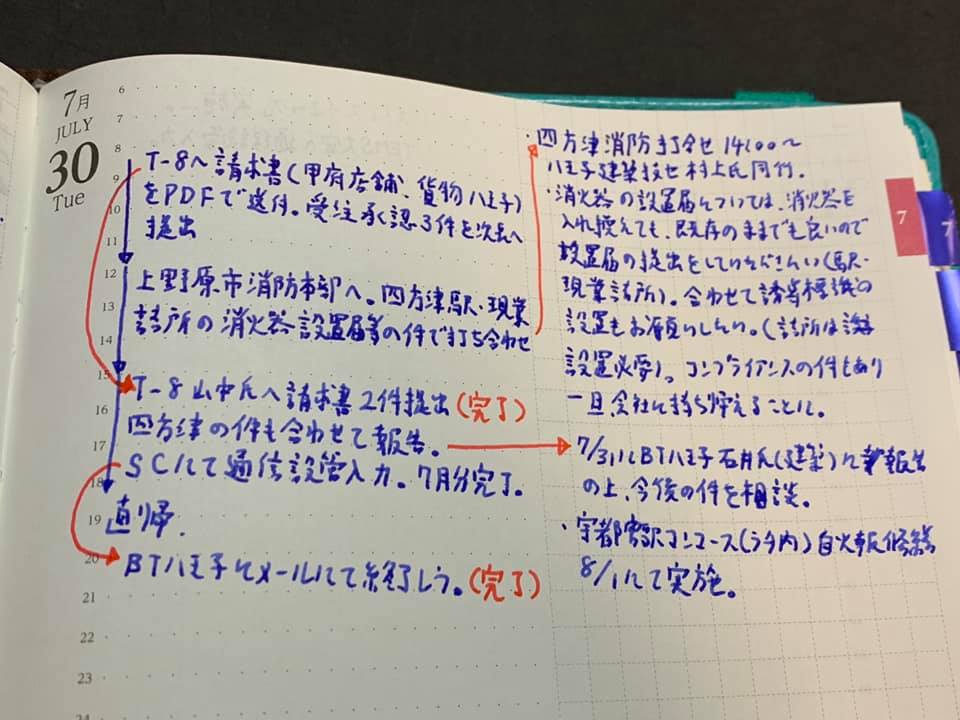 7月
JULY
30
Tue
6
7
8
9
10
11
12
13
14
15
16
17
18
19
20
21
22
23
24
T-8へ請求書(甲府店舗、貨物八王子)
をPDFで送付。受注承認3件を次長へ
提出
上野原市消防本部へ。四方津駅・現業
詰所の消火器設置届等の件で打ち合わせ
T-8山中氏へ請求書2件提出(完了)
四方津の件も合わせて報告。
SCにて通信設管入力。7月分完了。
直帰.
BT八王子へメールにて終了しう。(完了)
・四方津消防打合せ 14:00〜
八王子建築技セ村上氏同行.
・消火器の設置届については、消火器を
入れ換えても、既存のままでも良いので
設置届の提出をしていただきたい(駅・
現業詰所)。合わせて誘導標識の
設置もお願いしたい。(詰所は
設置必要)。コンプライアンスの件もあり
一旦会社に持ち帰えることに。
7/31にBT八王子石井氏(建築)に報告
の上、今後の件を相談。
・宇都宮駅コンコース(ラチ内)自火報修繕
8/1にて実施。
7
7